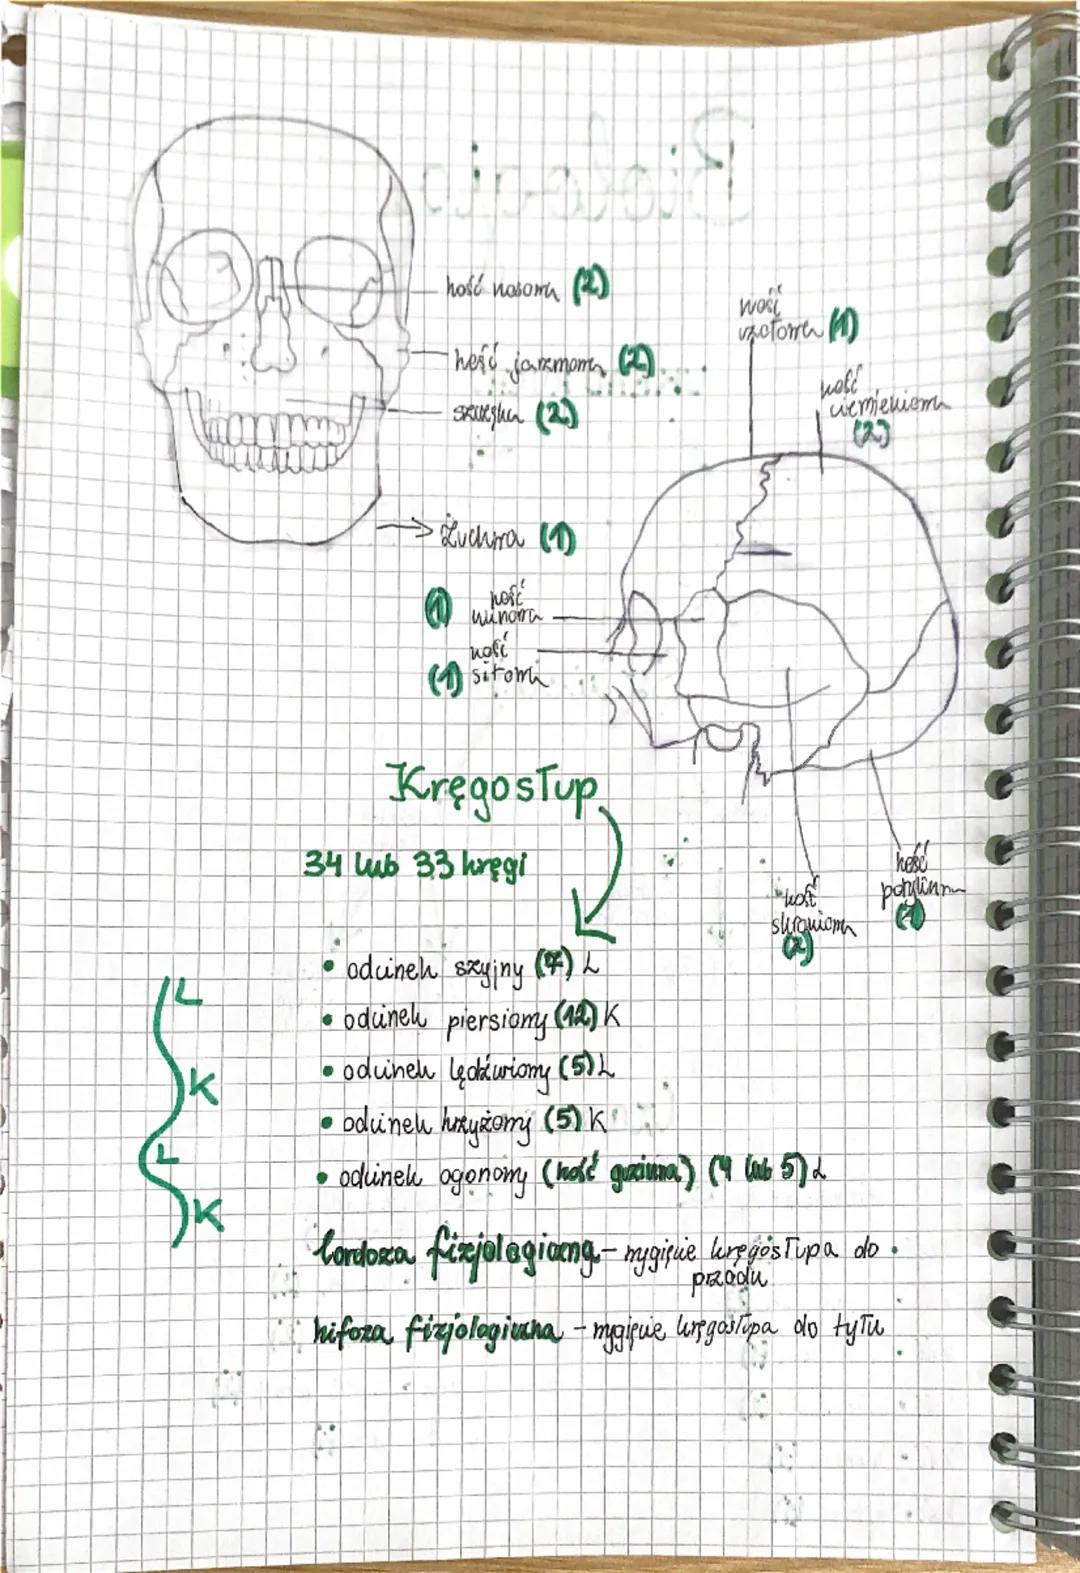 kość nosowa (2)
kość jarzmowa (2)
szczęka (2)
Żuchwa (1)
kość
czołowa (1)
kość
ciemieniowa
(2)
(1) kość
klinowa
kość
(1) sitowa
kość
skroniowa
(2)
kość
potyliczna
(1)
Kręgosłup
34 lub 33 kręgi
• odcinek szyjny (7) L
• odcinek piersiowy (12) K
• odcinek lędźwiowy (5) L
• odcinek krzyżowy (5) K
• odcinek ogonowy (kość guziczna) (4 lub 5) L
L
K
L
K
lordoza fizjologiczna - wygięcie kręgosłupa do
przodu
kifoza fizjologiczna - wygięcie kręgosłupa do tyłu